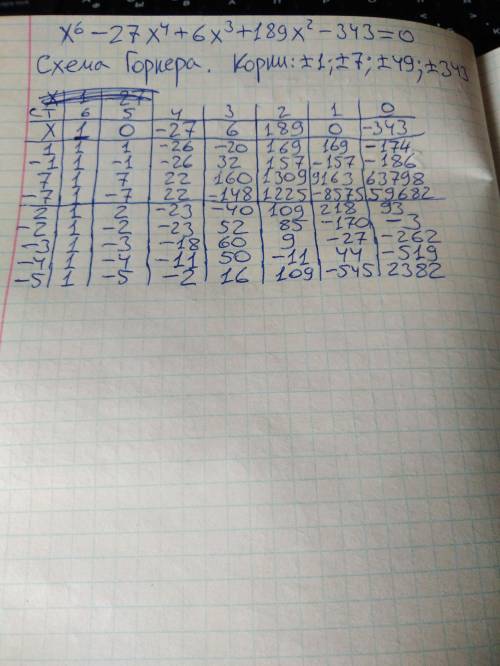 x⁶ − 27x⁴ + 6x³ + 189x² − 343 = 0
Схема Горнера. Корни: ±1; ±7; ±49; ±343
ст 6 5 4 3 2 1 0
X 1 0 −27 6 189 0 −343
1 1 1 −26 −20 169 169 −174
−1 1 −1 −26 32 157 −157 −186
7 1 7 22 160 1309 9163 63798
−7 1 −7 22 −148 1225 −8575 59682
2 1 2 −23 −40 109 218 93
−2 1 −2 −23 52 85 −170 −3
−3 1 −3 −18 60 9 −27 −262
−4 1 −4 −11 50 −11 44 −519
−5 1 −5 −2 16 109 −545 2382